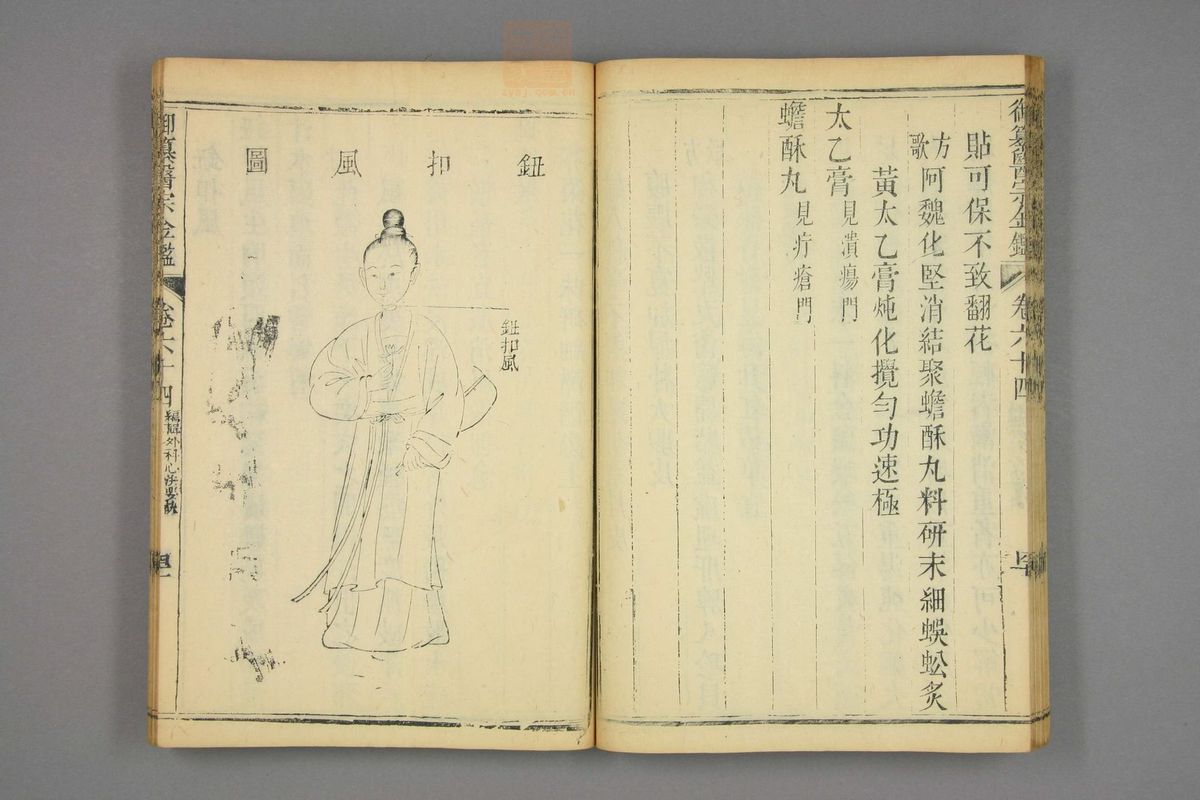 御纂醫宗金鑑
卷六十四
貼可保不致翻花
方歌
阿魏化堅消結聚蟾酥丸料研末細蜈蚣炙
黃太乙膏炖化攪勻功速極
太乙膏見潰瘍門
蟾酥丸見疔瘡門
鈕扣風圖
鈕扣風
御纂醫宗金鑑
卷六十四
編輯外科心法要訣